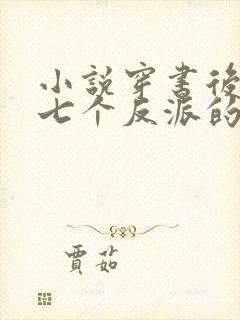 小說穿書後
七个反派的
賈茹